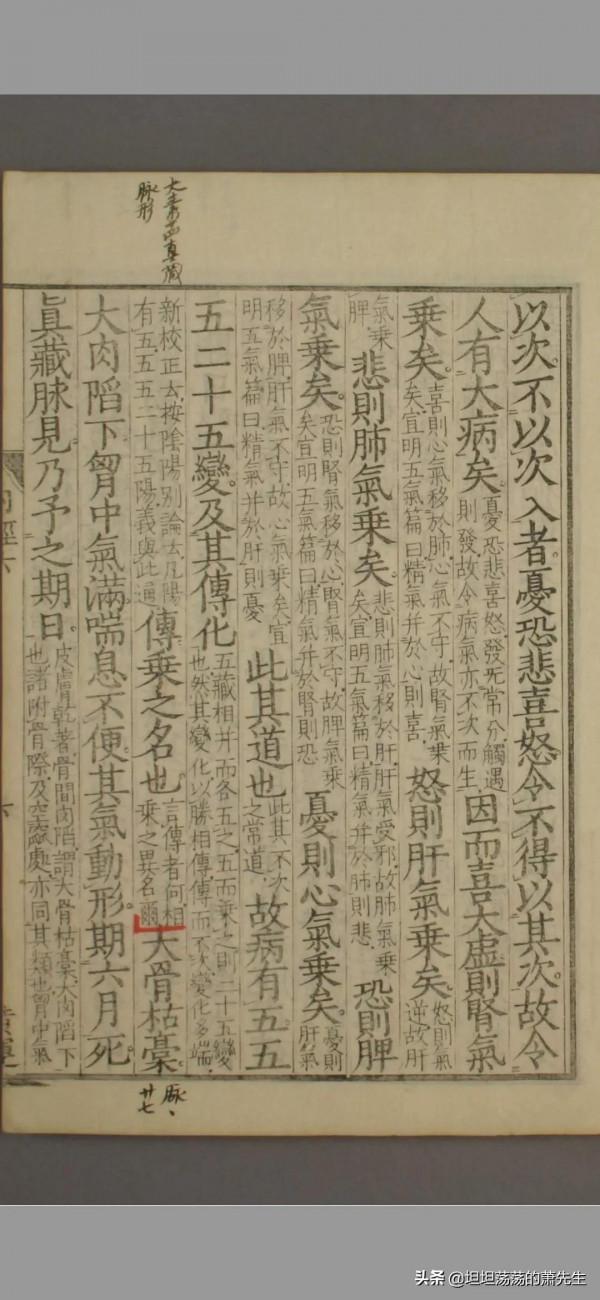 大素十四真藏
脉形
以次不以次入者憂恐悲喜怒令不得以其次故令
人有大病矣憂恐悲喜怒發无常分觸遇則發故令病氣亦不次而生因而喜大虛則腎氣
乘矣喜則心氣移於肺心氣不守故腎氣乘矣宣明五氣篇曰精氣并於心則喜怒則肝氣乘矣怒則氣逆故肝
氣乘脾悲則肺氣乘矣悲則肺氣移於肝肝氣受邪故肺氣乘矣宣明五氣篇曰精氣并於肺則悲恐則脾
氣乘矣恐則腎氣移於心腎氣不守故脾氣乘矣宣明五氣篇曰精氣并於腎則恐憂則心氣乘矣憂則肝氣
移於脾肝氣不守故心氣乘矣宣明五氣篇曰精氣并於肝則憂此其道也此其不次之常道故病有五五
五二十五變及其傳化五藏相并而各五之五而乘之則二十五變也然其變化以勝相傳傳而不次變化多端
新校正云按陰陽別論云凡陽有五五五二十五陽義與此通傳乘之名也言傳者何相乘之異名爾大骨枯槀
大肉陷下胷中氣滿喘息不便其氣動形期六月死
真藏脉見乃予之期日皮膚乾著骨間肉陷謂大骨枯槀大肉陷下也諸附骨際及空窳處亦同其類也胷中氣
脉、
廿七
头条 @坦坦荡荡的萧先生